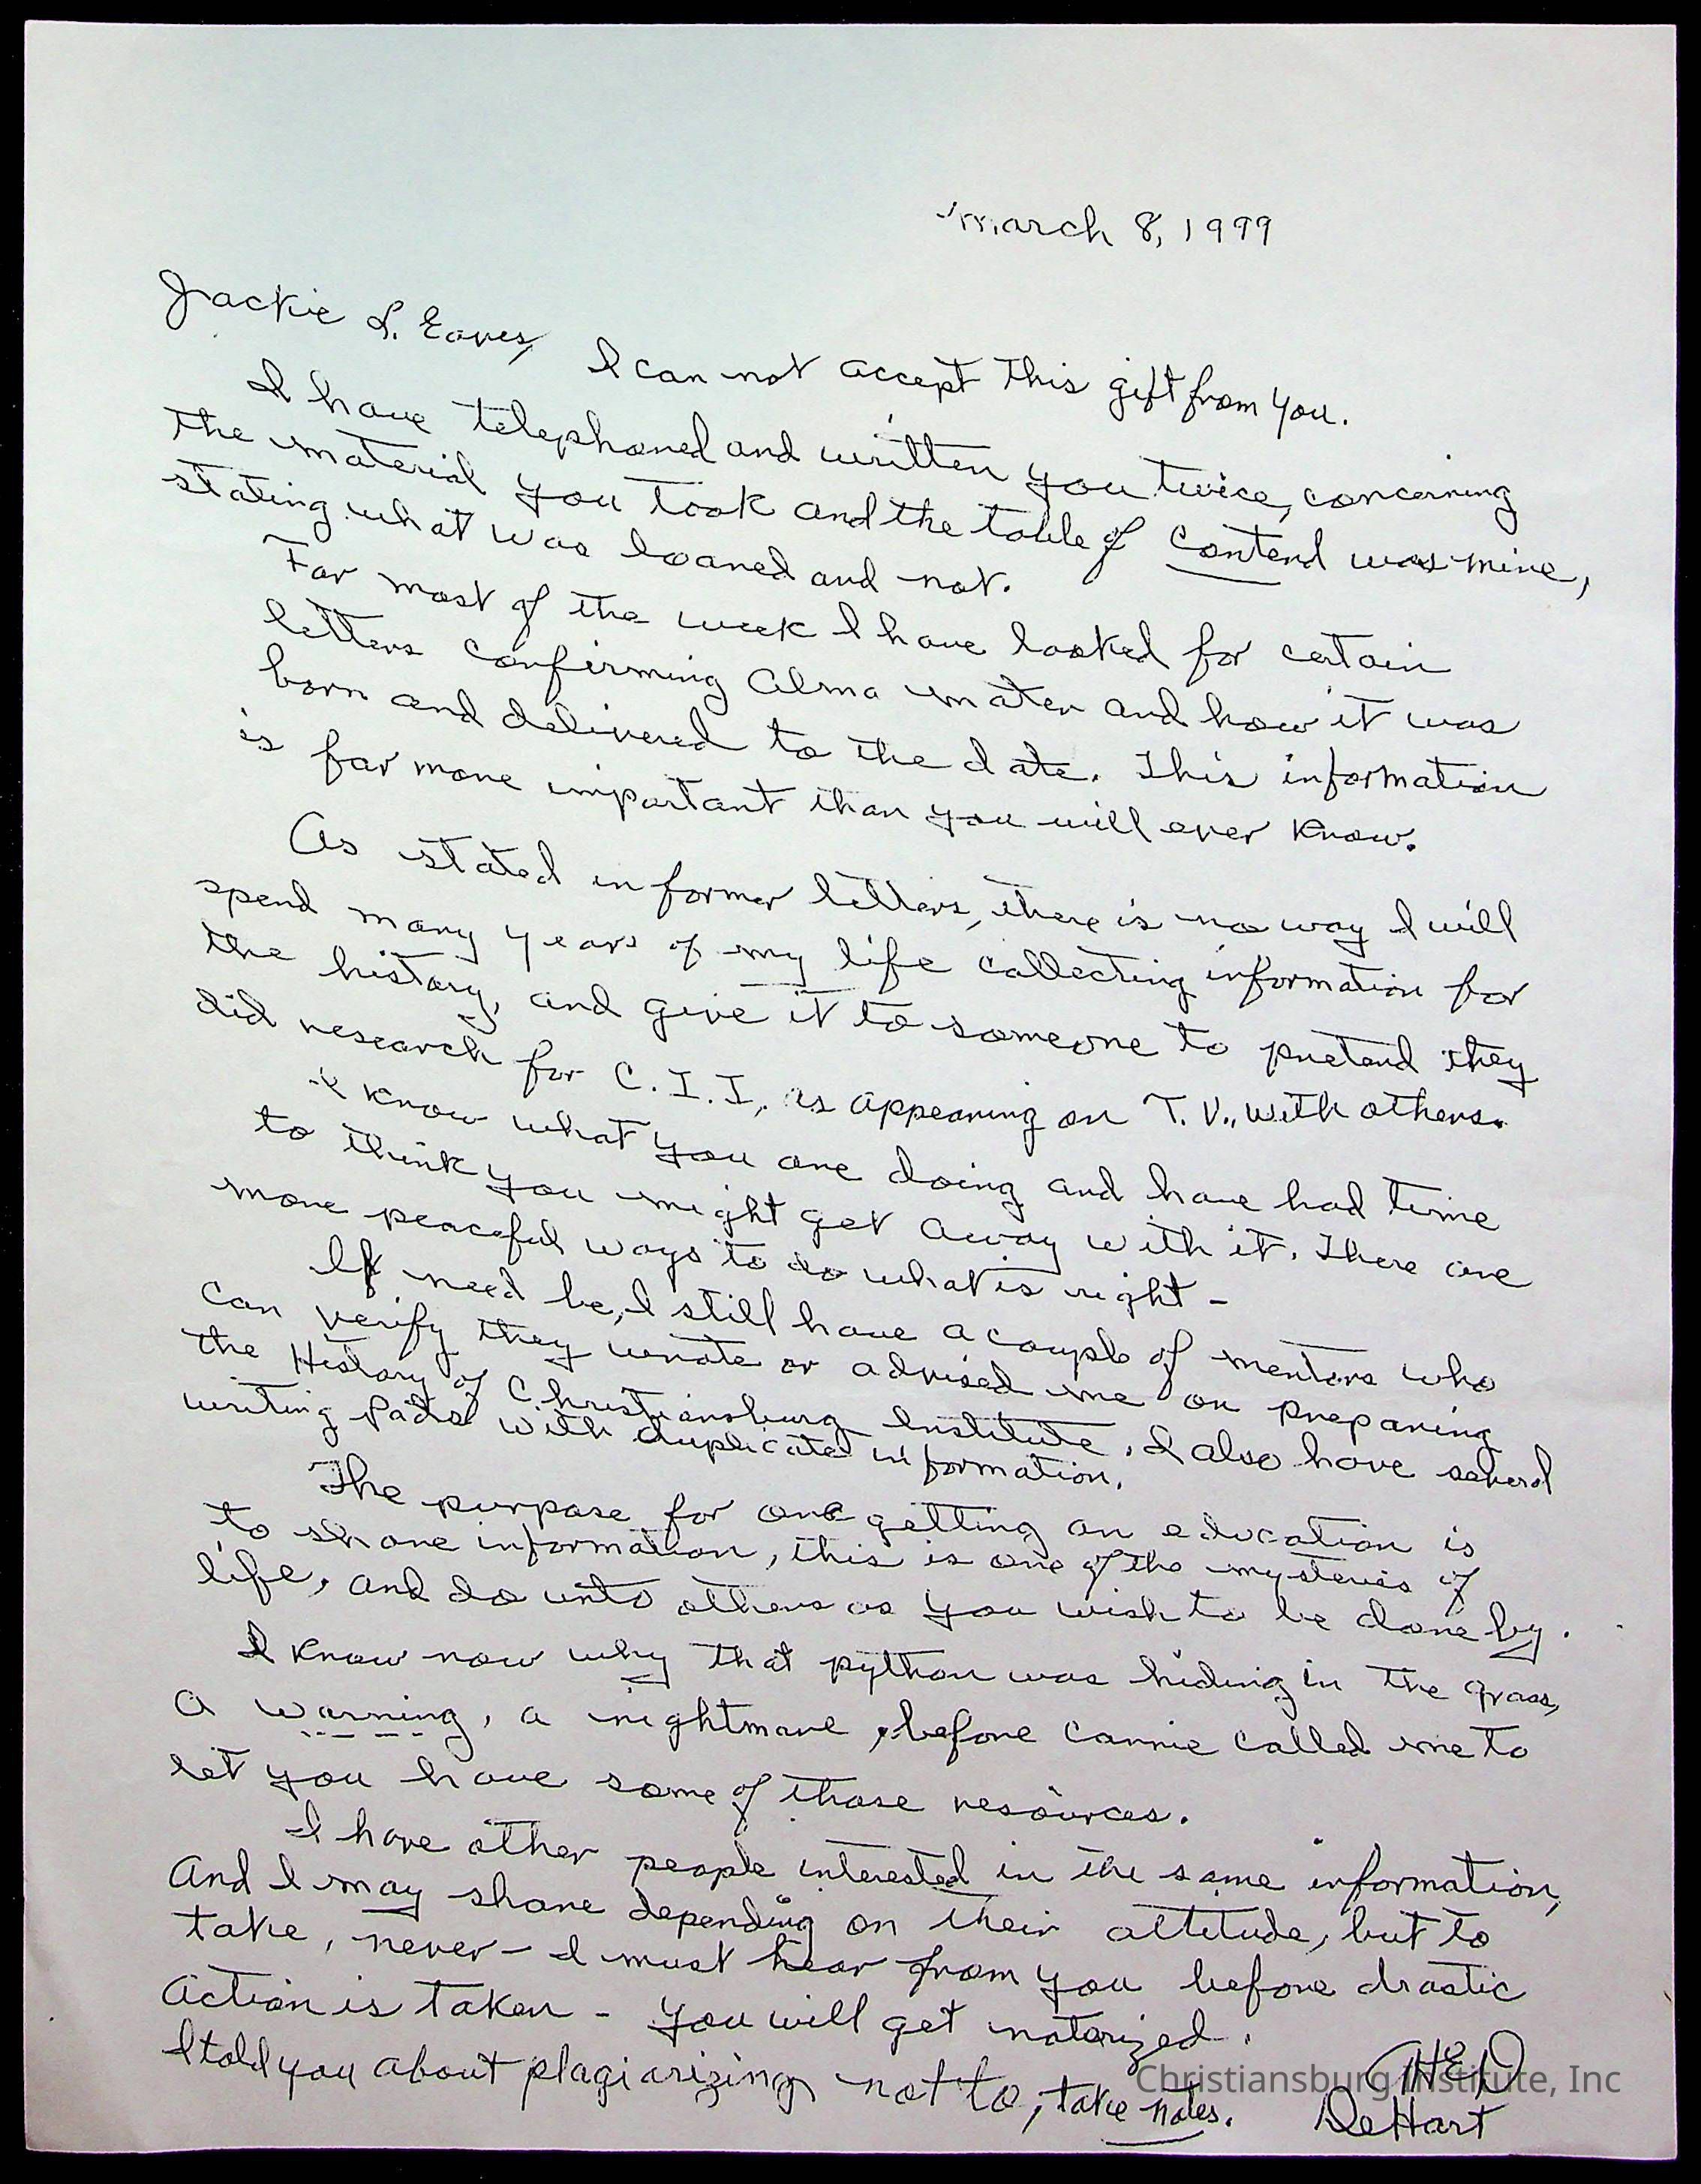 March 8, 1999
Jackie L. Eaves, I can not accept this gift from you.
I have telephoned and written you twice, concerning
the material you took and the table of contend was mine,
stating what was loaned and not.
For most of the week I have looked for certain
letters confirming Alma mater and how it was
born and delivered to the date. This information
is far more important than you will ever know.
As stated in former letters, there is no way I will
spend many years of my life collecting information for
the history, and give it to someone to pretend they
did research for C.I.I, as appearing on T.V., with others.
I know what you are doing and have had time
to think you might get away with it. There are
more peaceful ways to do what is right -
If need be, I still have a couple of mentors who
can verify they wrote or advised me on preparing
the History of Christiansburg Institute. I also have several
writing Pads with duplicated information.
The purpose for one getting an education is
to share information, this is one of the mysteries of
life, and do unto others as you wish to be done by.
I know now why that python was hiding in the grass,
a warning, a nightmare, before Cannie called me to
let you have some of those resources.
I have other people interested in the same information,
And I may share depending on their attitude, but to
take, never - I must hear from you before drastic
action is taken - you will get notorized.
I told you about plagiarizing not to, take notes.
HED
DeHart
Christiansburg Institute, Inc